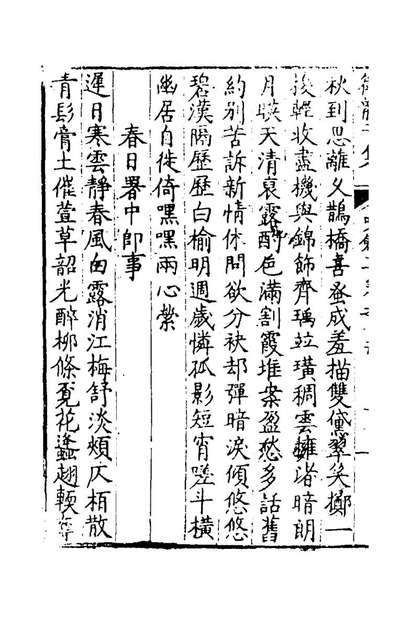 秋到思離乂鵲橋喜蚤成羞描雙黛翠笑擲一
梭輕收盡機與錦飾齊瑀竝璜稠雲擁渚暗朗
月暎天清裛露酌色滿割霞堆案盈愁多話舊
約別苦訴新情休問欲分袂却彈暗淚傾悠悠
碧漢隔歷歷白榆明週歲憐孤影短宵嗟斗橫
幽居自徙倚嘿嘿兩心縈
春日署中即事
遲日寒雲靜春風白露消江梅舒淡頰庭栢散
青髟膏土催萱草韶光醉柳條覓花蜂趐輭